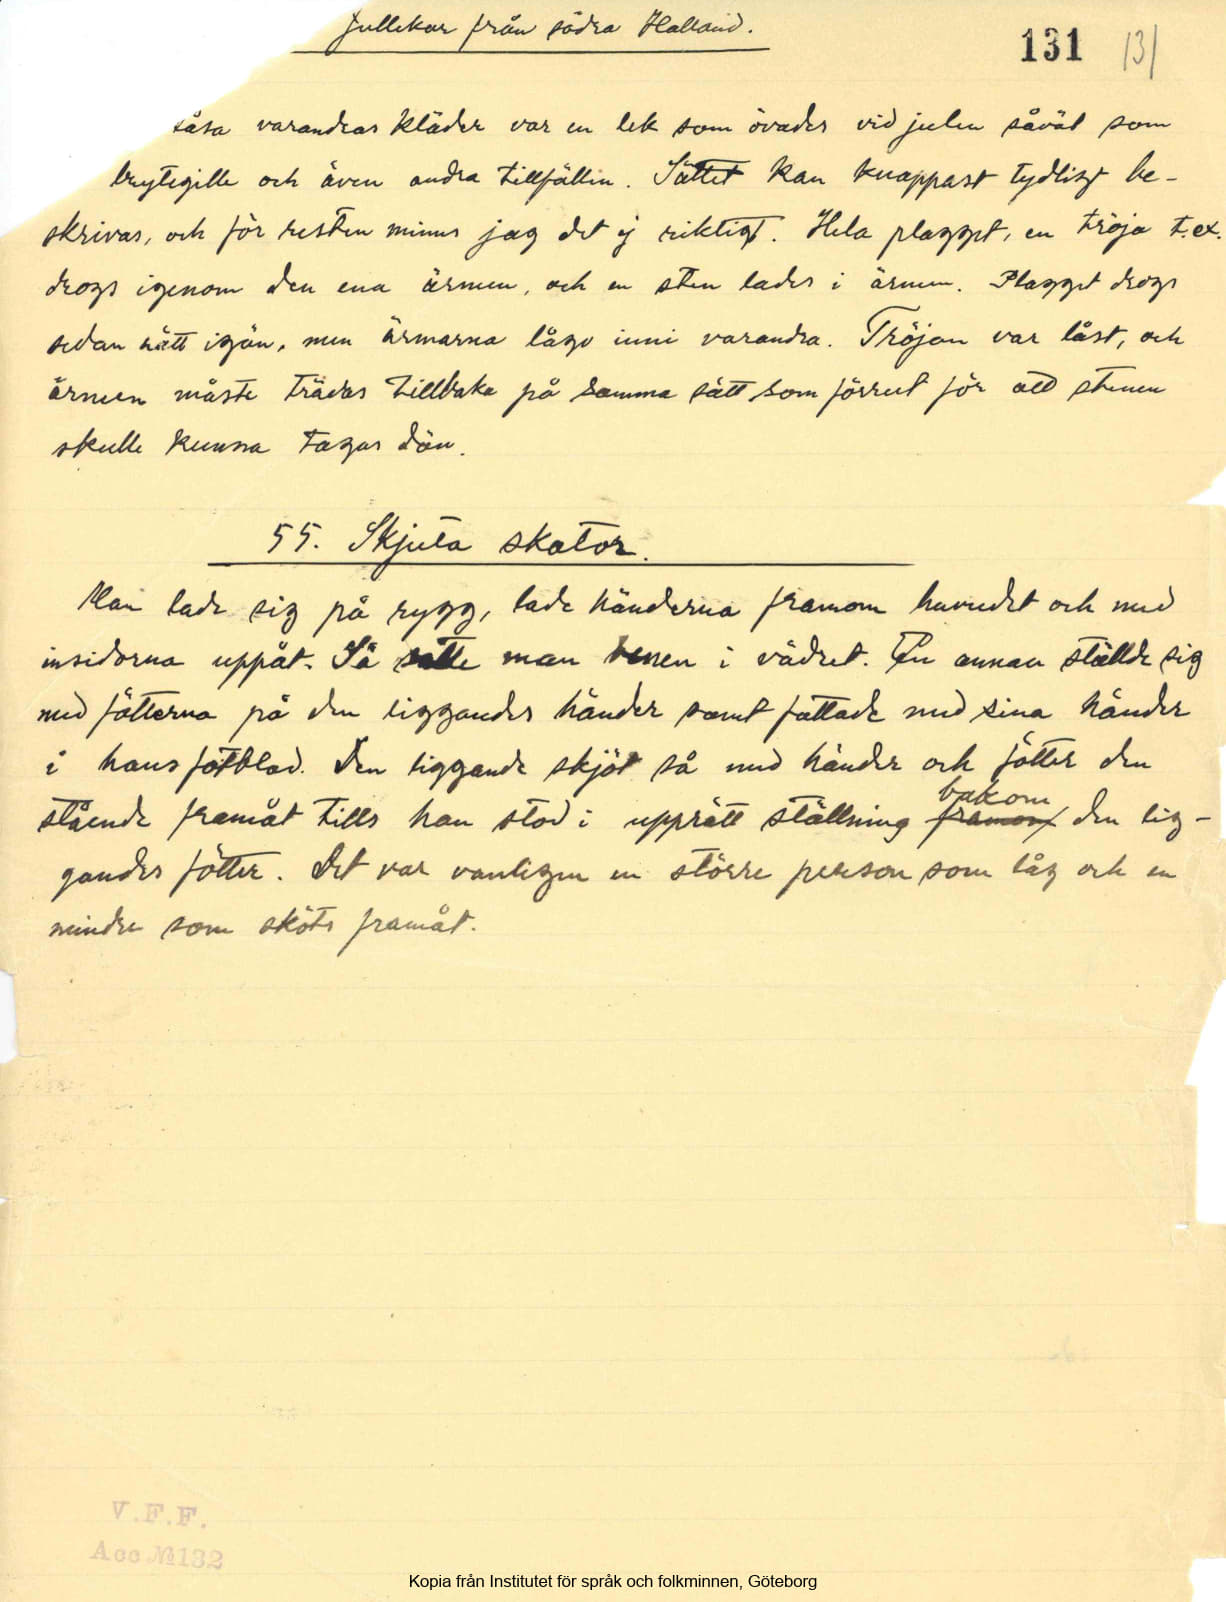 Jullekar från södra Halland.
131 131
låsa varandras kläder var en lek som övades vid julen såväl som
brytegille och även andra tillfällen. Sättet kan knappast tydligt be-
skrivas, och för resten minns jag det ej riktigt. Hela plagget, en tröja t.ex.
drogs igenom den ena ärmen, och en sten lades i ärmen. Plagget drogs
sedan rätt igän, men ärmarna lågo inni varandra. Tröjan var låst, och
ärmen måste trädas tillbaka på samma sätt som förrut för att stenen
skulle kunna tagas dän.
55. Skjuta skator.
Man lade sig på rygg, lade händerna framom huvudet och med
insidorna uppåt. Så satte man benen i vädret. En annan ställde sig
med fötterna på den liggandes händer samt fattade med sina händer
i hans fotblad. Den liggande skjöt så med händer och fötter den
stående framåt tills han stod i upprätt ställning framom bakom den lig-
gandes fötter. Det var vanligen en större person som låg och en
mindre som sköts framåt.
V.F.F.
Acc №132
Kopia från Institutet för språk och folkminnen, Göteborg